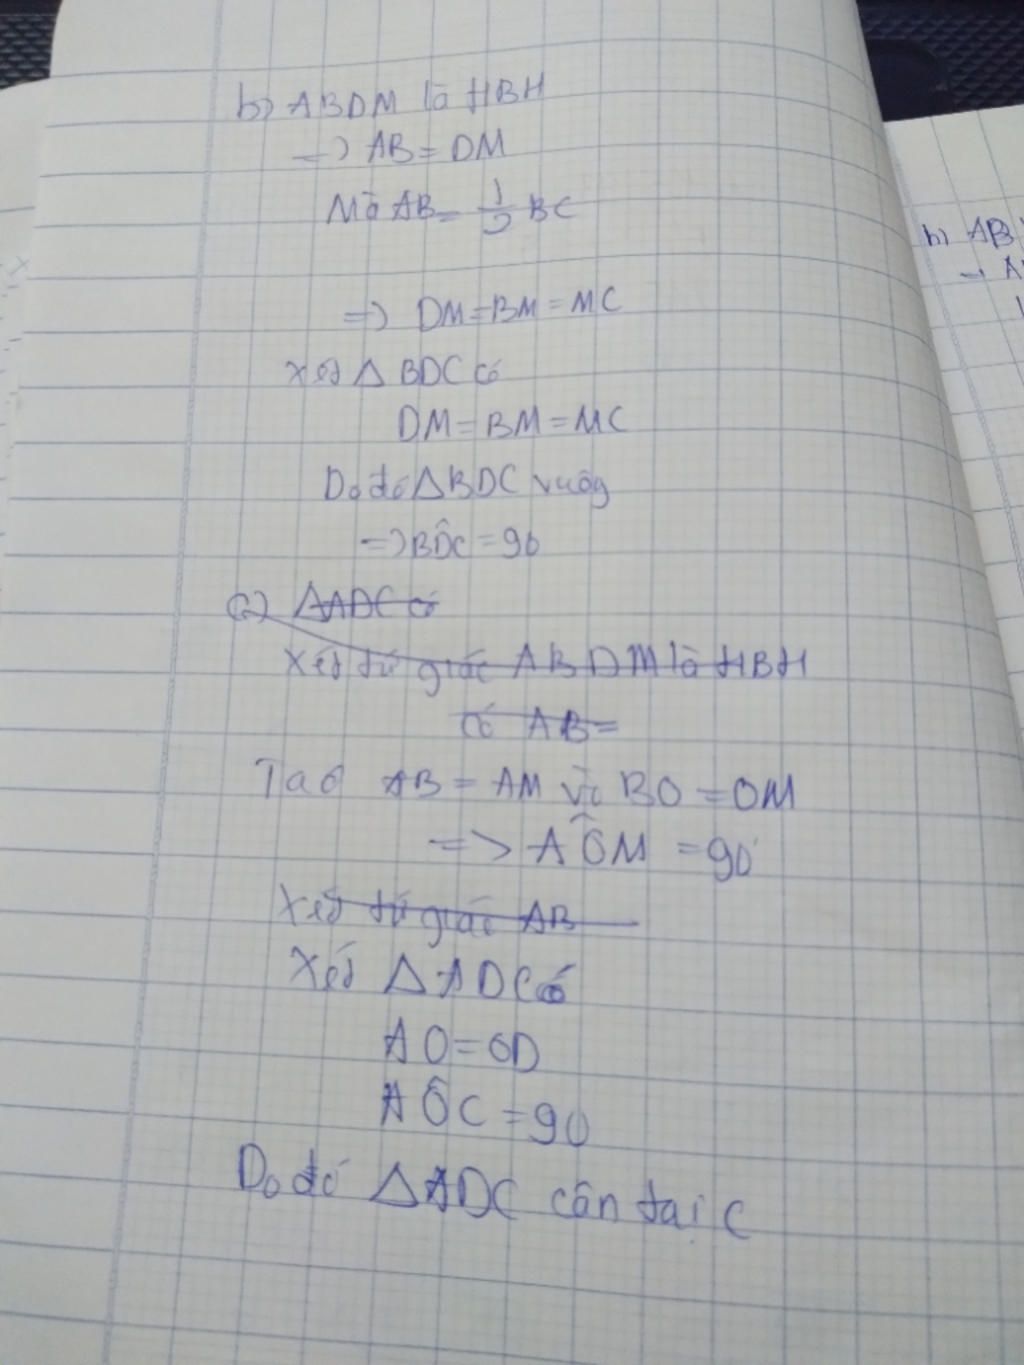 b) ABDM là HBH
=> AB = DM
Mà AB = 1/2 BC
=> DM = BM = MC
Xét Δ BDC có
DM = BM = MC
Do đó Δ BDC vuôg
=> BD̂C = 90
c) ΔADC có
Xét tứ giác ABDM là HBH
có AB =
Ta có AB = AM và BO = OM
=> AÔM = 90°
Xét tứ giác AB
Xét Δ ADC có
AO = OD
AÔC = 90
Do đó Δ ADC cân tại C
b) AB